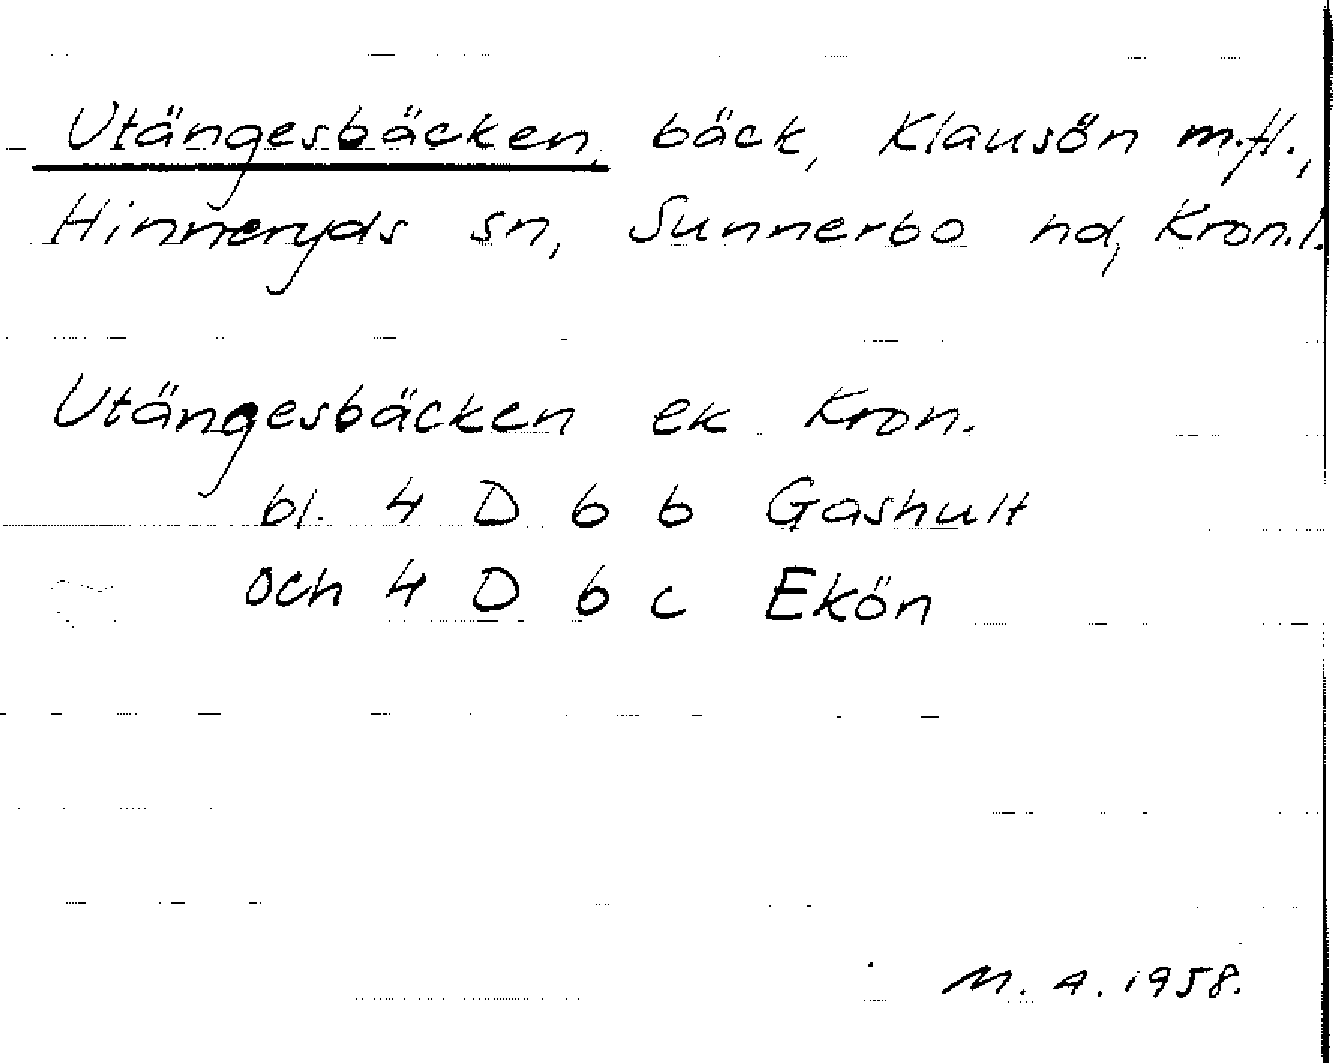 Utängesbäcken, bäck, Klausön m.fl.,
Hinneryds sn, Sunnerbo hd, Kron.l.
Utängesbäcken ek Kron.
bl. 4 D 6 b Gashult
och 4 D 6 c Ekön
M. A. 1958.